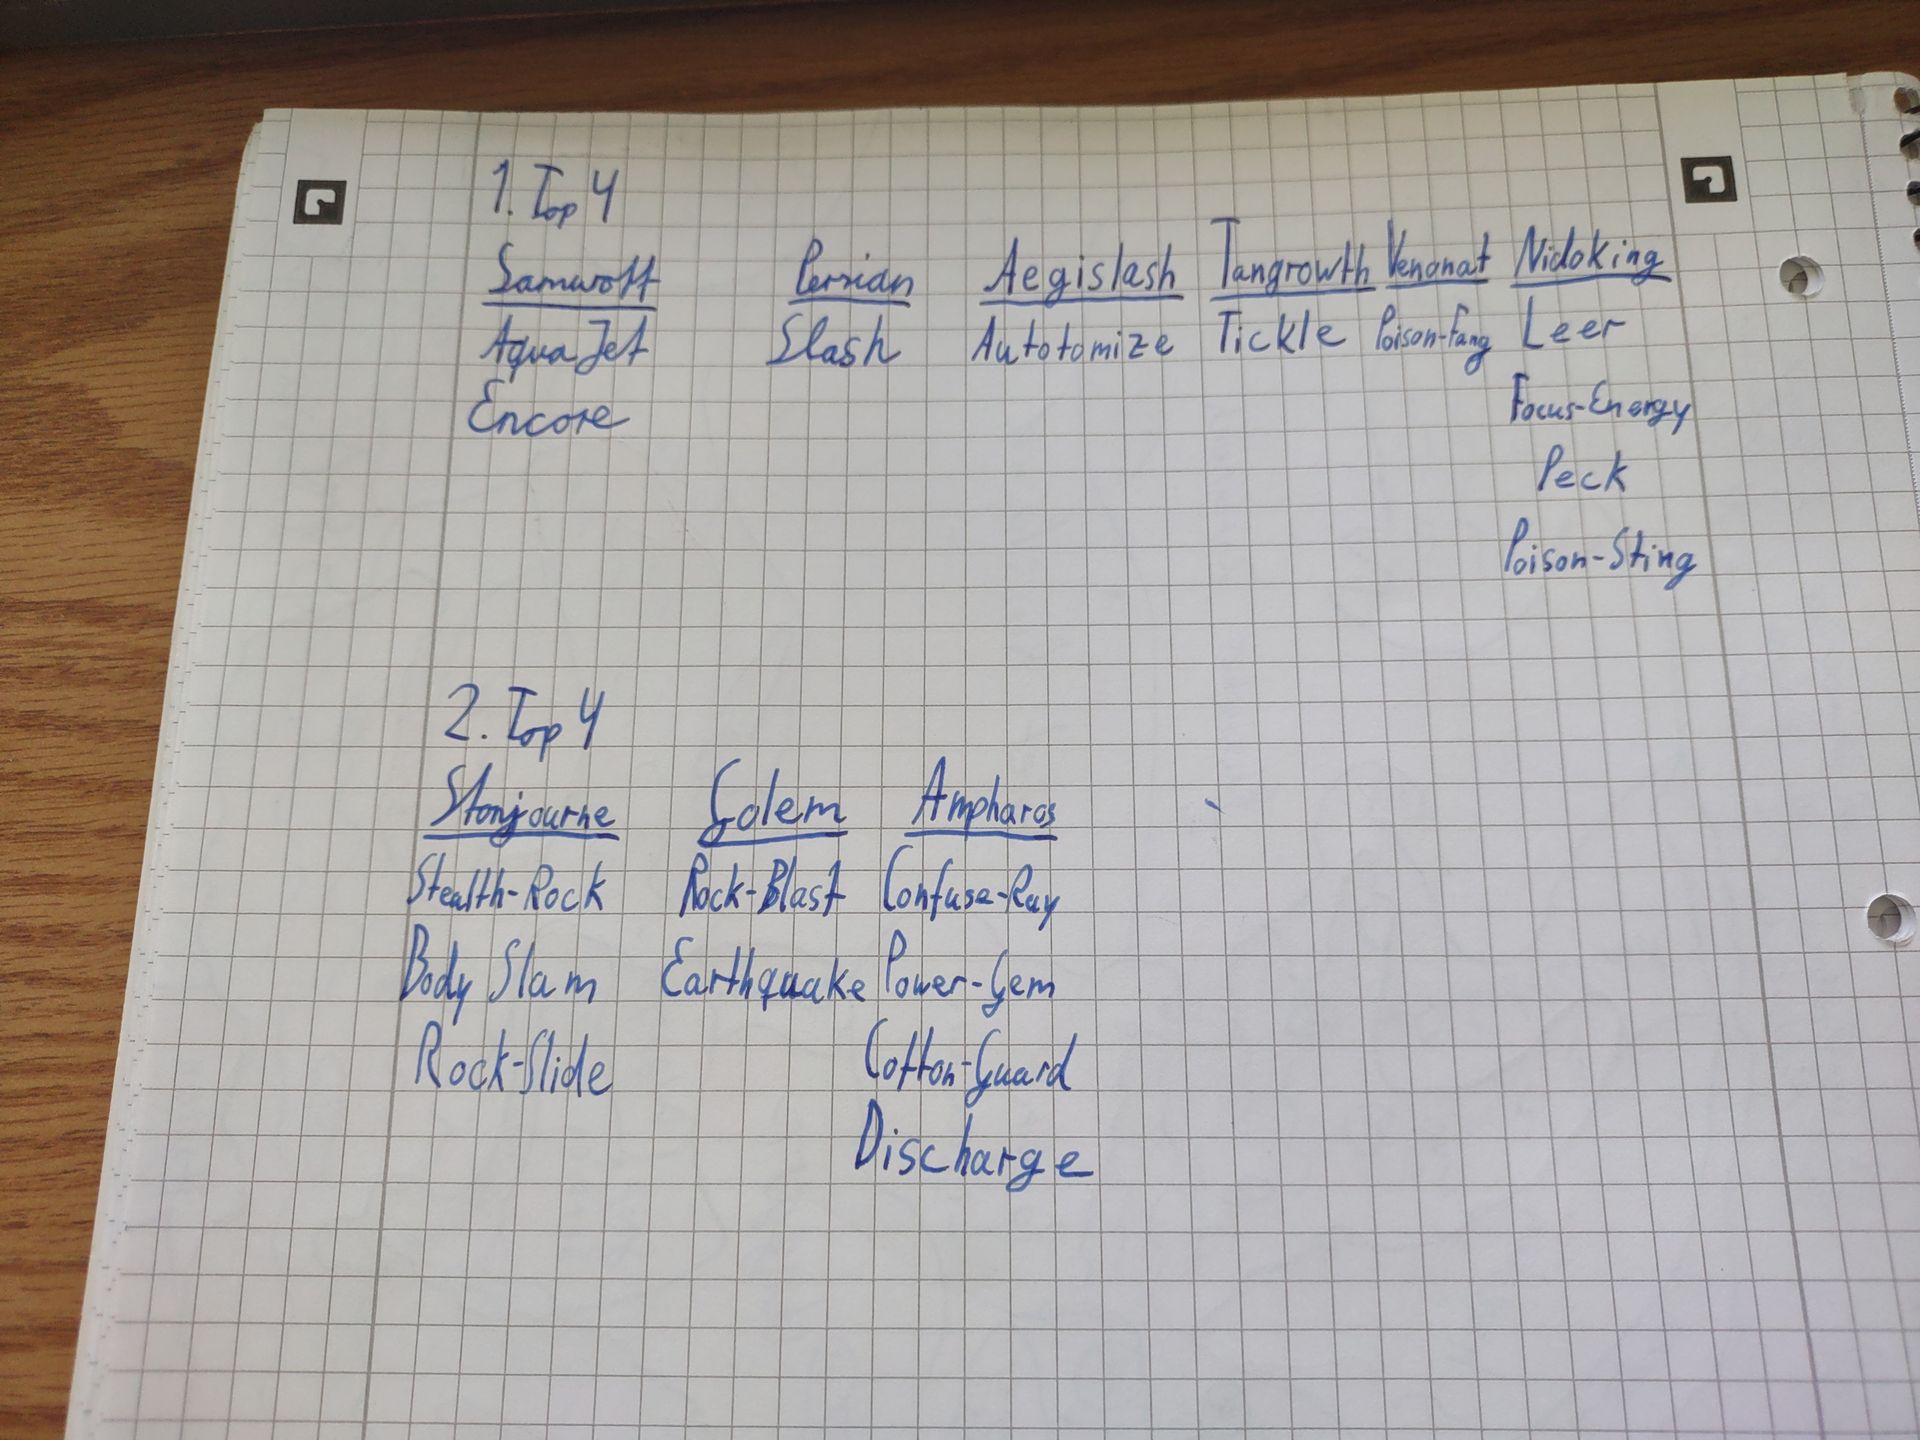 1. Top 4
Samurott Persian Aegislash Tangrowth Venonat Nidoking
Aqua Jet Slash Autotomize Tickle Poison-Fang Leer
Encore Focus-Energy
Peck
Poison-Sting
2. Top 4
Stonjourne Golem Ampharos
Stealth-Rock Rock-Blast Confuse-Ray
Body Slam Earthquake Power-Gem
Rock-Slide Cotton-Guard
Discharge